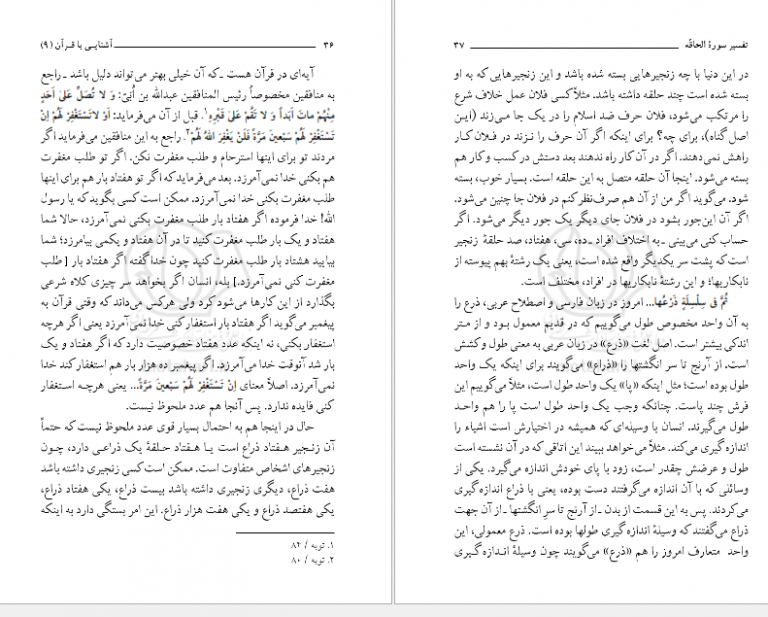 ۳۶ آشنایی با قرآن (۹)
آیه‌ای در قرآن هست ـ که آن خیلی بهتر می‌تواند دلیل باشد ـ راجع
به منافقین مخصوصاً رئیس المنافقین عبدالله بن اُبَیّ: وَ لا تُصَلِّ عَلیٰ اَحَدٍ
مِنْهُمْ ماتَ اَبَداً وَ لا تَقُمْ عَلیٰ قَبْرِهِ۱. قبل از آن می‌فرماید: اَوْ لاتَسْتَغْفِرْ لَهُمْ اِنْ
تَسْتَغْفِرْ لَهُمْ سَبْعینَ مَرَّةً فَلَنْ یَغْفِرَ اللهُ لَهُمْ۲. راجع به این منافقین می‌فرماید اگر
مردند تو برای اینها استرحام و طلب مغفرت نکن. اگر تو طلب مغفرت
هم بکنی خدا نمی‌آمرزد. بعد می‌فرماید که اگر تو هفتاد بار هم برای اینها
طلب مغفرت بکنی خدا نمی‌آمرزد. ممکن است کسی بگوید که یا رسول
الله! خدا فرموده اگر هفتاد بار طلب مغفرت بکنی نمی‌آمرزد، حالا شما
هفتاد و یک بار طلب مغفرت کنید تا در آن هفتاد و یکمی بیامرزد؛ شما
بیایید هشتاد بار طلب مغفرت کنید چون خدا گفته اگر هفتاد بار [طلب
مغفرت کنی نمی‌آمرزد.] بله، انسان اگر بخواهد سر چیزی کلاه شرعی
بگذارد از این کارها می‌شود کرد ولی هرکس می‌داند که وقتی قرآن به
پیغمبر می‌گوید اگر هفتاد بار استغفار کنی خدا نمی‌آمرزد یعنی اگر هرچه
استغفار بکنی، نه اینکه عدد هفتاد خصوصیت دارد که اگر هفتاد و یک
بار شد آنوقت خدا می‌آمرزد. اگر پیغمبر ده هزار بار هم استغفار کند خدا
نمی‌آمرزد. اصلاً معنای اِنْ تَسْتَغْفِرْ لَهُمْ سَبْعینَ مَرَّةً... یعنی هرچه استغفار
کنی فایده ندارد. پس آنجا هم عدد ملحوظ نیست.
حال در اینجا هم به احتمال بسیار قوی عدد ملحوظ نیست که حتماً
آن زنجیر هفتاد ذراع است یا هفتاد حلقهٔ یک ذراعی دارد، چون
زنجیرهای اشخاص متفاوت است. ممکن است کسی زنجیری داشته باشد
هفت ذراع، دیگری زنجیری داشته باشد بیست ذراع، یکی هفتاد ذراع،
یکی هفتصد ذراع و یکی هفت هزار ذراع. این امر بستگی دارد به اینکه
۱. توبه / ۸۴
۲. توبه / ۸۰
تفسیر سورهٔ الحاقّه ۳۷
در این دنیا با چه زنجیرهایی بسته شده باشد و این زنجیرهایی که به او
بسته شده است چند حلقه داشته باشد. مثلاً کسی فلان عمل خلاف شرع
را مرتکب می‌شود، فلان حرف ضد اسلام را در یک جا می‌زند (این
اصل گناه)، برای چه؟ برای اینکه اگر آن حرف را نزند در فلان کار
راهش نمی‌دهند. اگر در آن کار راه ندهند بعد دستش در کسب و کار هم
بسته می‌شود. اینجا آن حلقه متصل به این حلقه است. بسیار خوب، بسته
شود. می‌گوید اگر من از آن هم صرف‌نظر کنم در فلان جا چنین می‌شود.
اگر آن این‌جور بشود در فلان جای دیگر یک جور دیگر می‌شود. اگر
حساب کنی می‌بینی ـ به اختلاف افراد ـ ده، سی، هفتاد، صد حلقهٔ زنجیر
است که پشت سر یکدیگر واقع شده است، یعنی یک رشتهٔ بهم پیوسته از
نابکاریها؛ و این رشتهٔ نابکاریها در افراد، مختلف است.
ثُمَّ فی سِلْسِلَةٍ ذَرْعُها... امروز در زبان فارسی و اصطلاح عربی، ذرع را
به آن واحد مخصوص طول می‌گوییم که در قدیم معمول بود و از متر
اندکی بیشتر است. اصل لغت «ذرع» در زبان عربی به معنی طول و کشش
است. از آرنج تا سر انگشتها را «ذراع» می‌گویند برای اینکه یک واحد
طول بوده است؛ مثل اینکه «پا» یک واحد طول است، مثلاً می‌گوییم این
فرش چند پاست. چنانکه وجب یک واحد طول است پا را هم واحد
طول می‌گیرند. انسان با وسیله‌ای که همیشه در اختیارش است اشیاء را
اندازه گیری می‌کند. مثلاً می‌خواهد ببیند این اتاقی که در آن نشسته است
طول و عرضش چقدر است، زود با پای خودش اندازه می‌گیرد. یکی از
وسائلی که با آن اندازه می‌گرفتند دست بوده، یعنی با ذراع اندازه گیری
می‌کردند. پس به این قسمت از بدن ـ از آرنج تا سر انگشتها ـ از آن جهت
ذراع می‌گفتند که وسیلهٔ اندازه گیری طولها بوده است. ذرع معمولی، این
واحد متعارف امروز را هم «ذرع» می‌گویند چون وسیلهٔ اندازه گیری